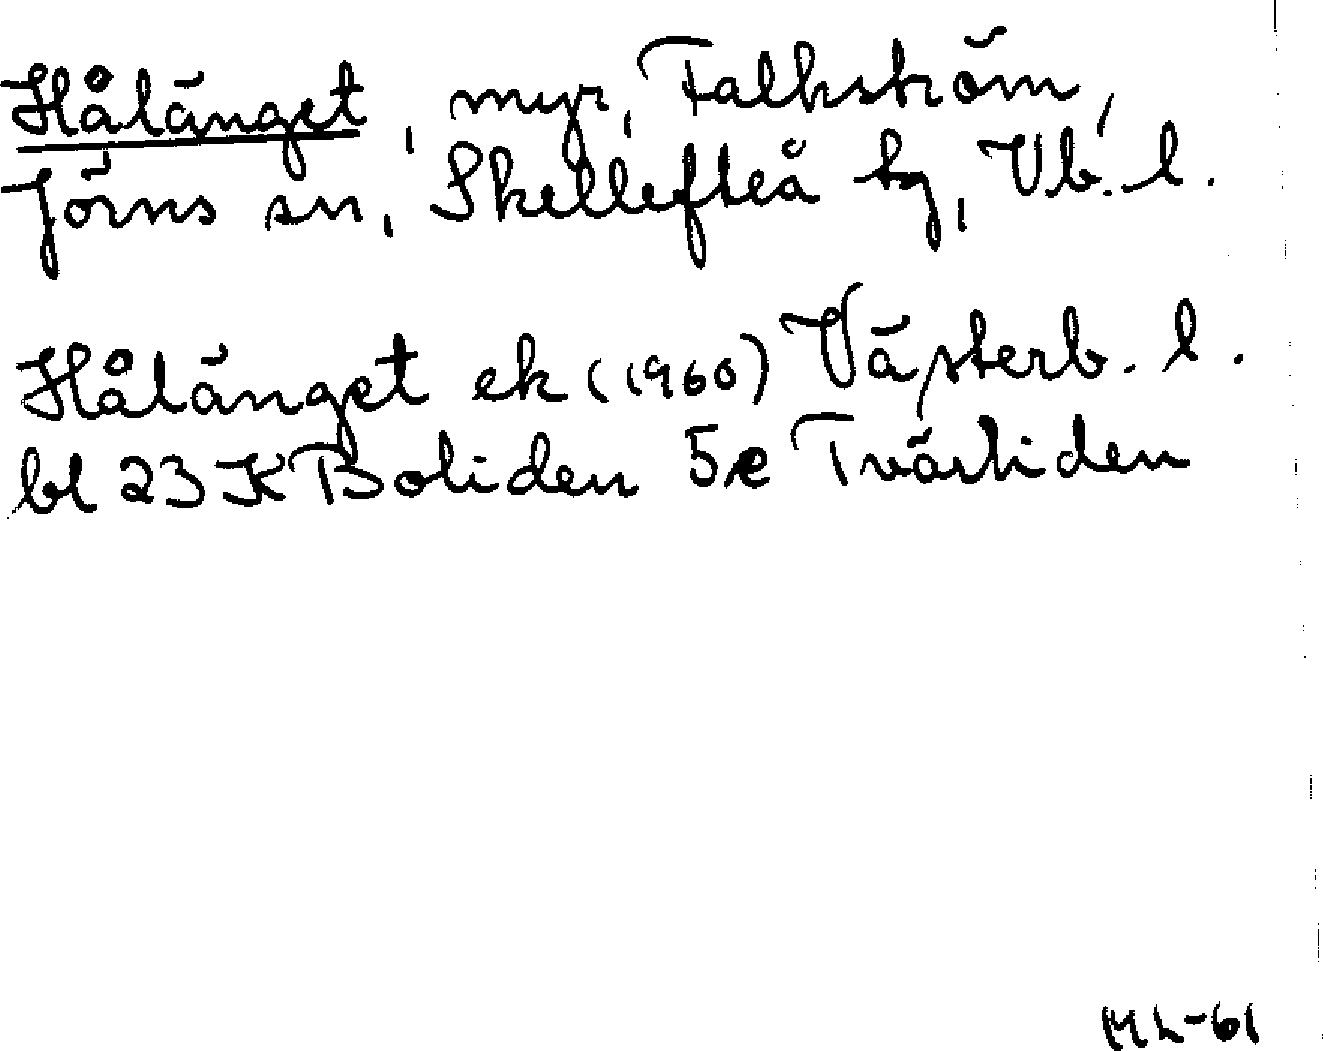 Hålänget, myr, Falkström,
Jörns sn, Skellefteå tg, Vb. l.
Hålänget ek (1960) Västerb. l.
bl 23 K Boliden 5e Tvärliden
ML-61